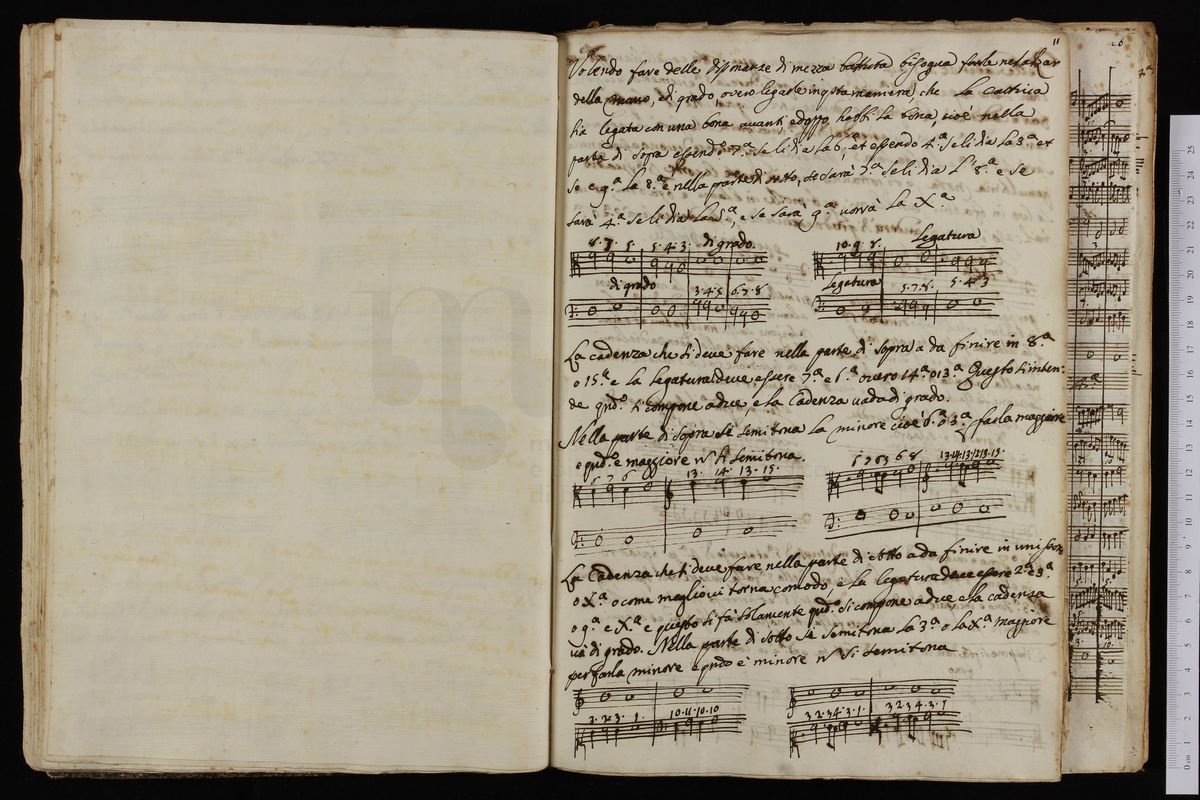 11
Volendo fare delle dissonanze di mezza battuta bisogna farle nel alzar
della mano, e di grado, overo legarle in qsta maniera, che la cattiva
sia legata con una bona avanti, e doppo, habbi la bona, cioè nella
parte di sopra essendo 7.ª se li dia la 6.ª et essendo 4.ª se li dia la 3.ª et
se e 9.ª la 8.ª e nella parte di sotto, se sarà 7.ª se li dia l'8.ª e se
sarà 4.ª se li dia la 5.ª, e se sarà 9.ª vorrà la X.ª
8. 7. 5. 5. 4. 3. di grado
10. 9. 8. Legatura
di grado 3. 4. 5 6. 7. 8
Legatura 5. 7. 8. 5. 4. 3
La cadenza che si deve fare nella parte di sopra a da finire in 8.ª
o 15.ª e la legatura deve essere 7.ª e 6.ª overo 14.ª o 13.ª Questo s'inten:
de qndo. si compone a due, e la Cadenza vada di grado.
Nella parte di sopra se semitona la minore cioè 6.ª o 3.ª farla maggiore
e qndo. e maggiore n si semitona.
6 7 6 8 13. 14. 13. 15.
6 7 6 5 6 8 13. 14. 13 12 13. 15.
La Cadenza che si deve fare nella parte di sotto a da finire in unisson
o X.ª o come meglio vi torna comodo, e la legatura deve essere 2.ª e 3.ª
o 9.ª e X.ª e questo si fa solamente qndo. si compone a due, e la cadenza
va di grado. Nella parte di sotto se semitona la 3.ª o la X.ª maggiore
per farla minore e qndo e minore n si semitona
2. 2. 3. 1. 10. 11. 10. 10
3 2. 3 4. 3. 1. 3 2. 3 4. 3. 1
26